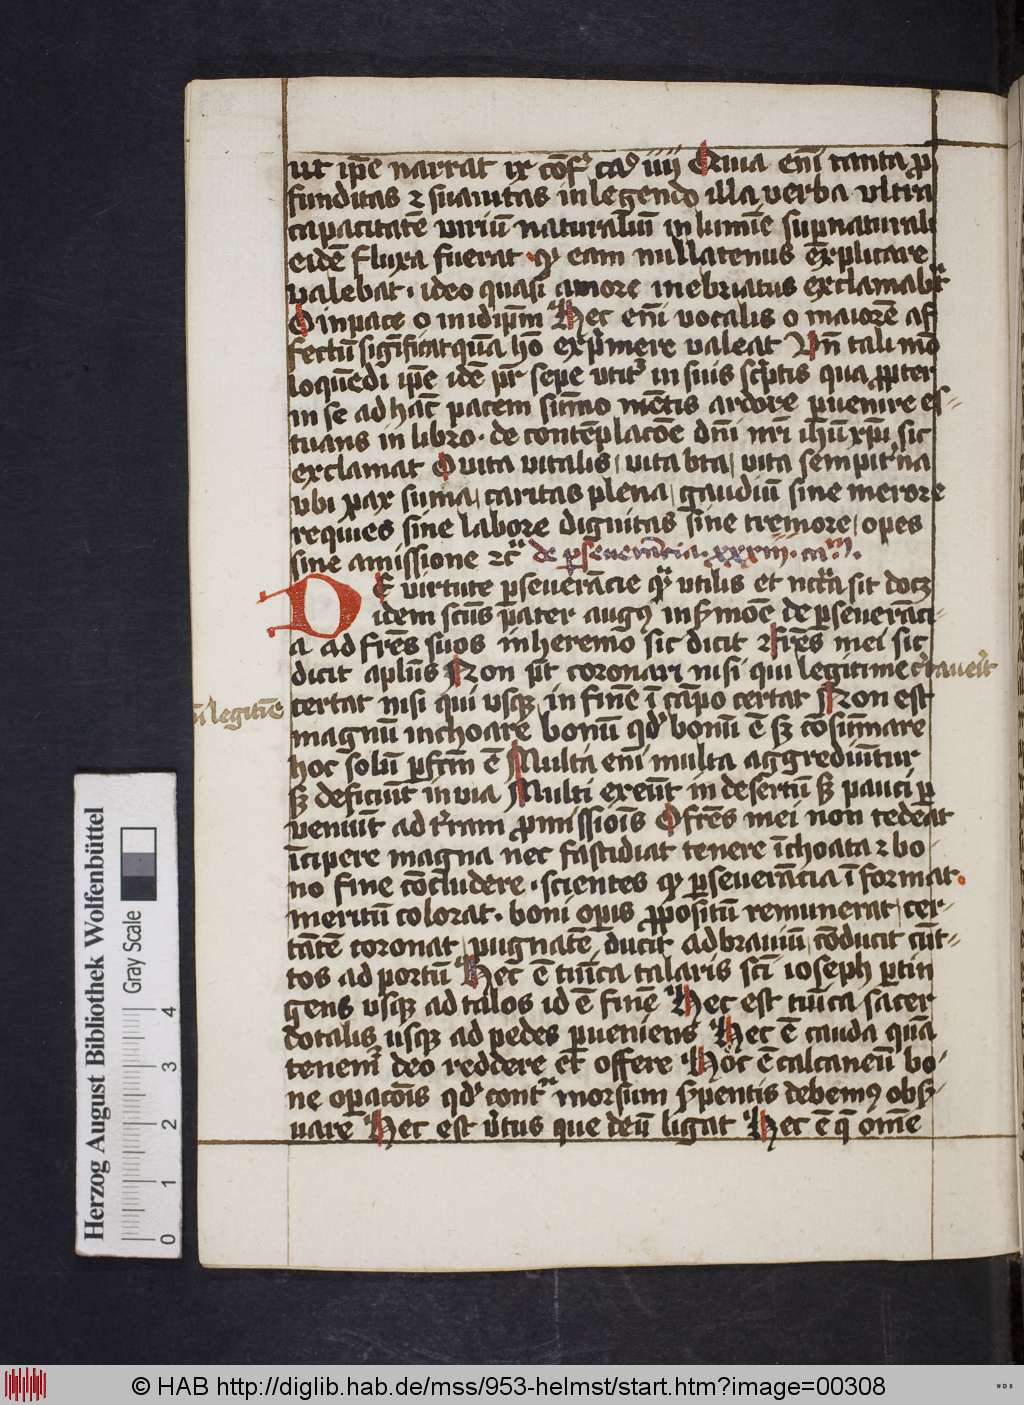 ut ip̄e narrat ix cōf. ca. iiij Quia em̄ tanta ꝓ
funditas ⁊ suauitas in legendo illa verba vltra
capacitatē viriū naturaliū in lumīe suꝑnaturali
eidē fluxa fuerat · qꝫ eam nullatenus explicare
valebat · ideo quasi amore inebriatus exclamabᵗ
O in pace o in idip̄m Hec em̄ vocalis o maiorē af
fectū significat quā hō exp̄mere valeat Vn̄ tali mō
loquēdi ip̄e idē pr̄ sepe vtit᷑ in suis sc̄ptis qua ꝓpter
in se ad hāc pacem sūmo mētis ardore ꝑuenire es-
tuans in libro · de contēplacōe dn̄i nr̄i ihū xp̄i sic
exclamat O vita vitalis / vita bt̄a / vita sempit᷑na
vbi pax suma / caritas plena / gaudiū sine merore
requies sine labore dignitas sine tremore / opes
sine amissione ⁊cᷓ de ꝑseuerācia · xxxiij · caᵐ.
DE virtute ꝑseuerācie qᷓ vtilis et nc̄ꝛia sit docꝫ
idem sc̄us pater augꝰ in s̄mōe de ꝑseuerāci-
a ad fr̄es suos in heremo sic dicit ⁊ fr̄es mei sic
dicit apl̄us Non s̄t coronari nisi qui legitime c̄tauer̄it
n̄ legitīe
certat nisi qui vsqꝫ in finē ī cāpo certat Non est
magnū inchoare bonū qd̓ bonū ē sꝫ cōsūmare
hoc solū ꝑfc̄m ē Multa em̄ multa aggrediūtur
sꝫ deficiūt in via Multi exeūt in desertū sꝫ pauci ꝑ
veniūt ad t̓ram ꝓmissiōis O fr̄es mei non tedeat
īcipere magna nec fastidiat tenere īchoata ⁊ bo-
no fine cōcludere · scientes qꝫ ꝑseuerācia īformat
meritū colorat · boni oꝑis ꝓpositū remunerat / cer-
tātē coronat / pugnātē ducit ad brauiū / cōducit cūt-
tos ad portū Hec ē tunīca talaris sc̄i ioseph ꝑtin
gens vsqꝫ ad talos id ē finē Hec est tunīca sacer
dotalis vsqꝫ ad pedes ꝑueniens Hec ē cauda quā
tenem᷑ deo reddere et offere Hoc ē calcaneū bo-
ne oꝑacōis qd̓ contᷓ morsum s̓pentis debemꝰ obs̓
uare Hec est v̓tus que deū ligat Hec ē q̄ omē
Herzog August Bibliothek Wolfenbüttel
Gray Scale
0 1 2 3 4
© HAB http://diglib.hab.de/mss/953-helmst/start.htm?image=00308